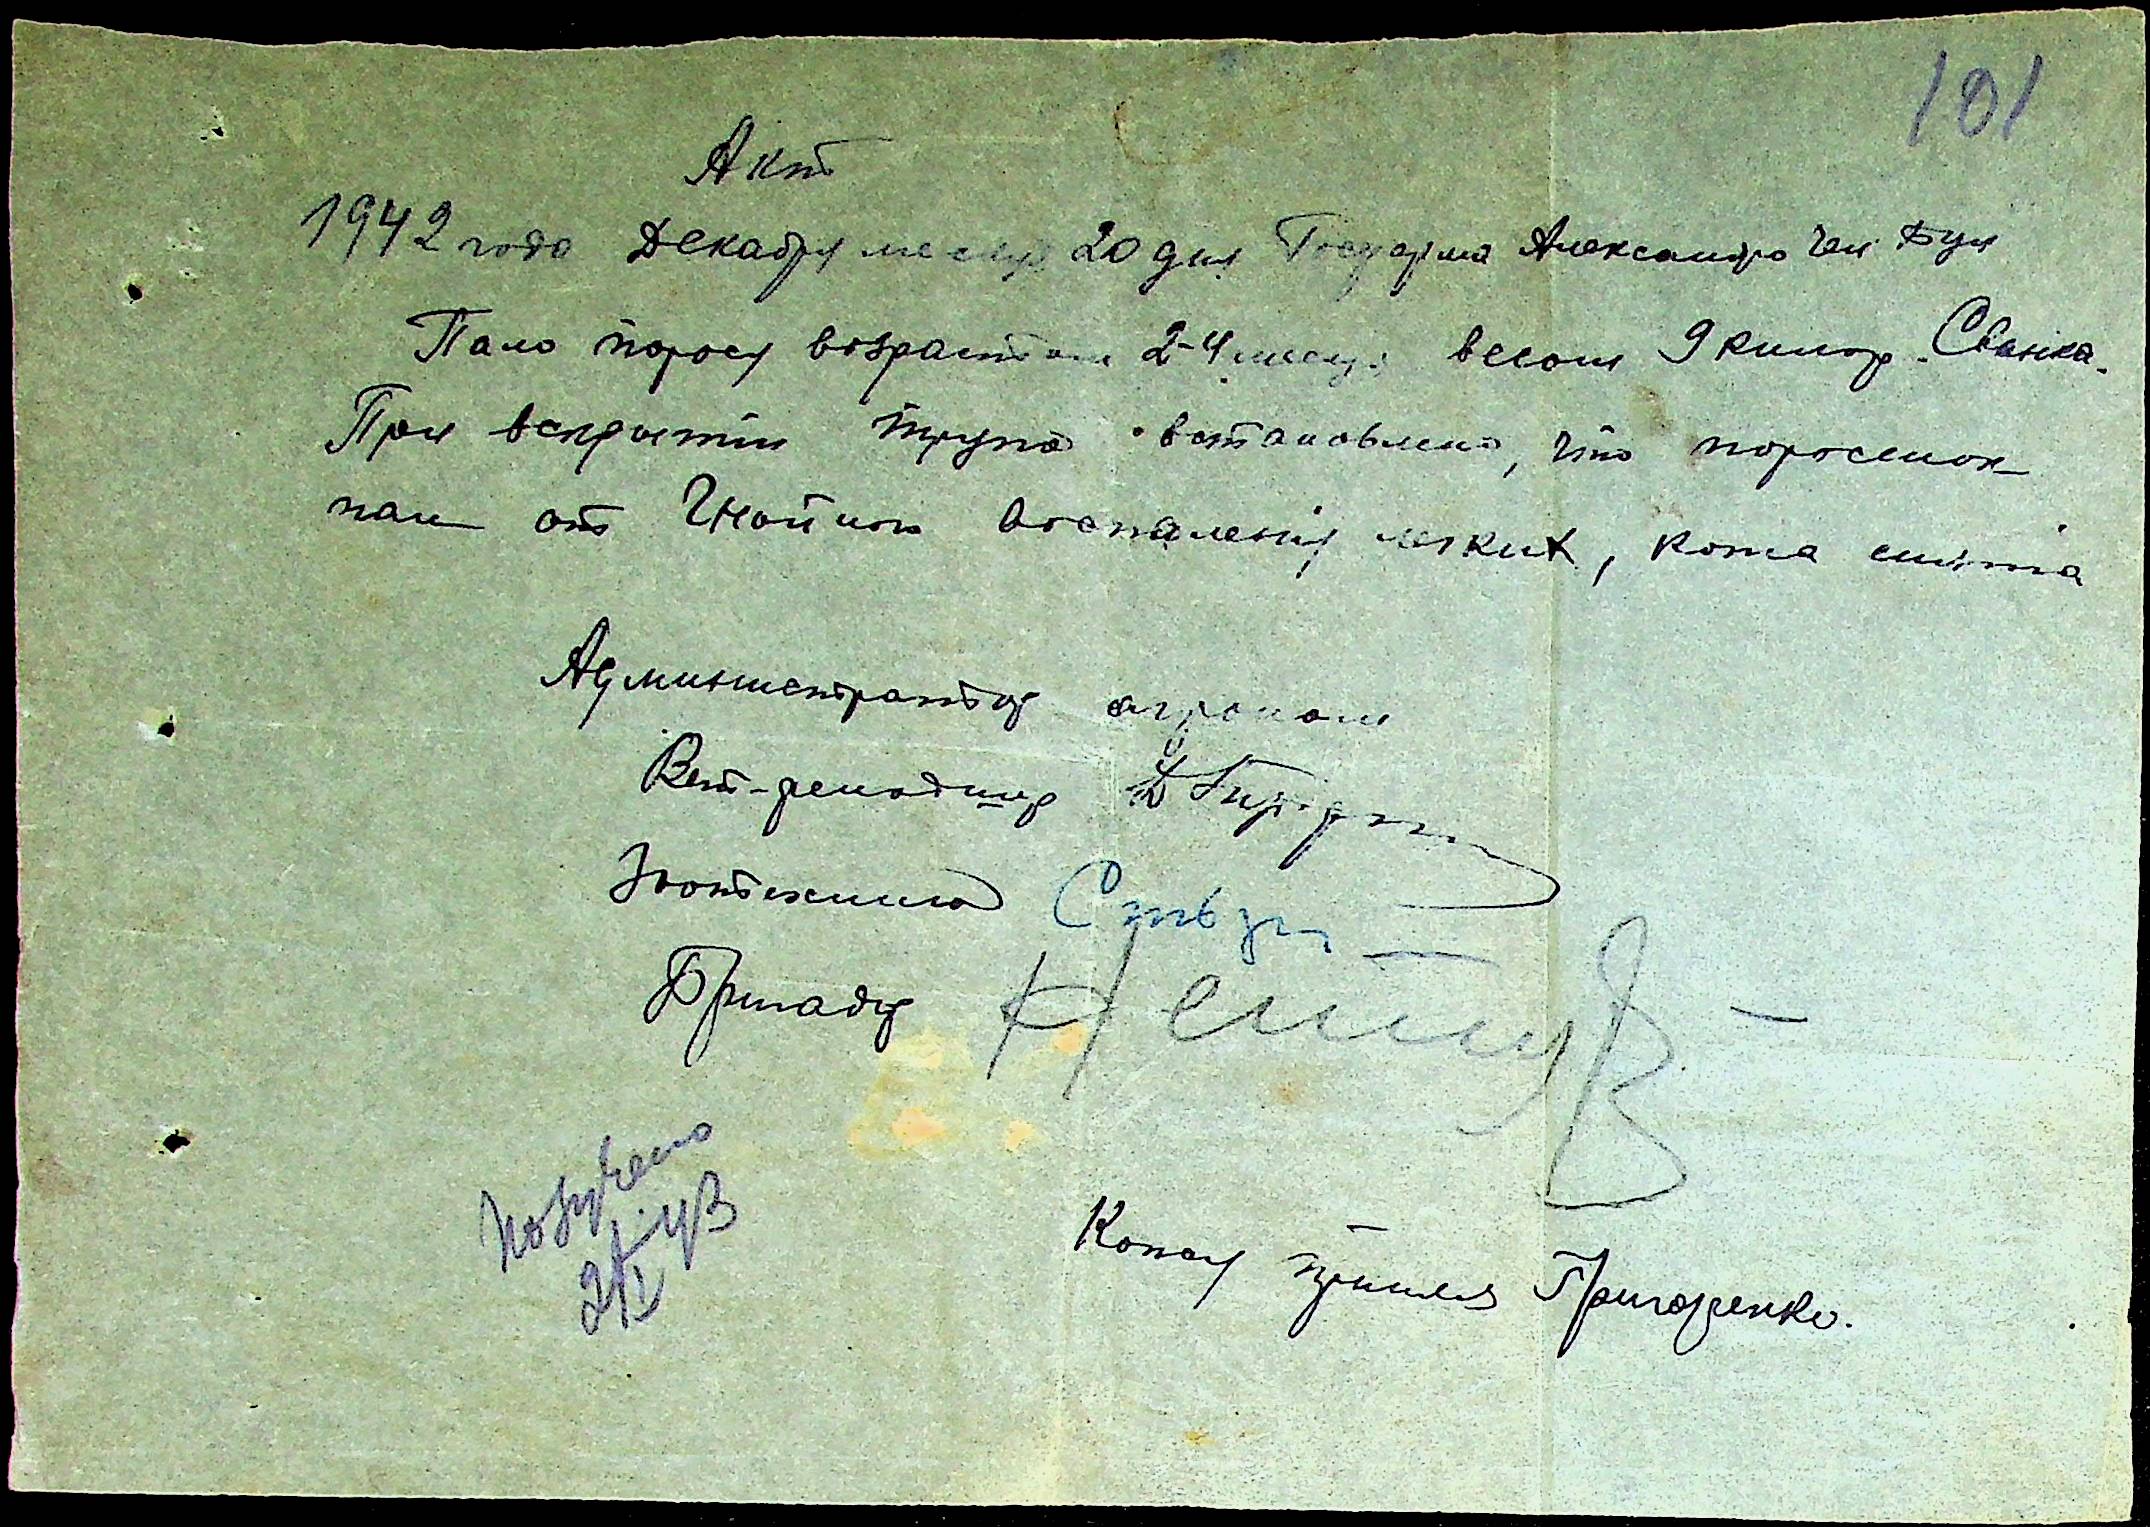 101
Акт
1942 года Декабря месяца 20 дня Госферма Александро
Пало порося возрастом 2-4 месяц. весом 9 килогр. Свинка.
При вскрытии трупа востановлено, что поросенок
пал от Гнойного воспаления легких, кожа снята
Администратор агроном
Вет-фельдшер
Зоотехник
Бригадир
Кожу принял Григоренко.